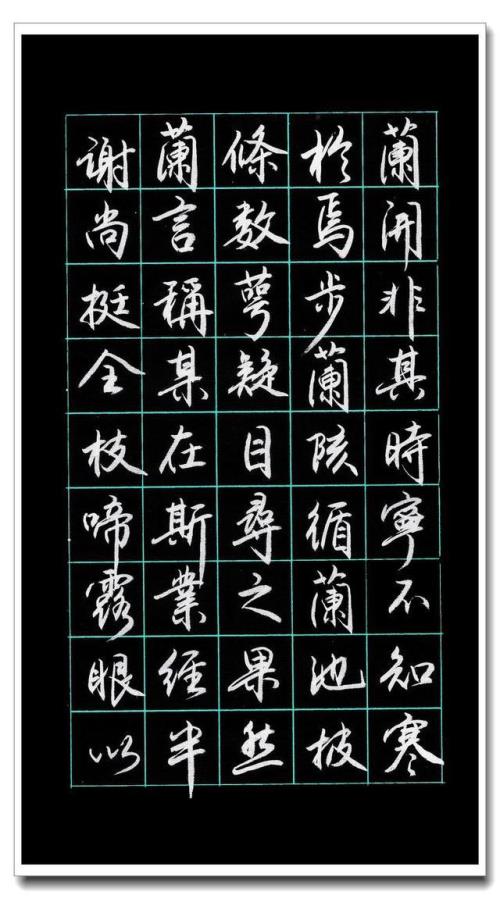 蘭開非其時寧不知寒
於焉步蘭陔循蘭池披
條數萼疑目尋之果然
蘭言稱某在斯業經半
謝尚挺全枝啼露眼以